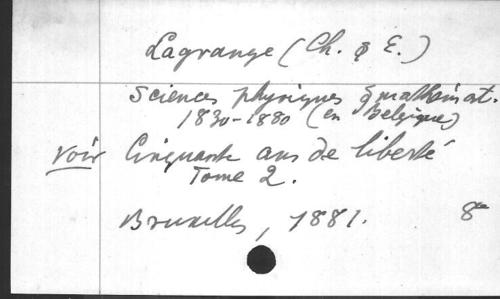 Lagrange (Ch. & E.)
Sciences physiques & mathémat.
1830-1880 (en Belgique)
voir Cinquante ans de liberté
Tome 2.
Bruxelles, 1881. 8º